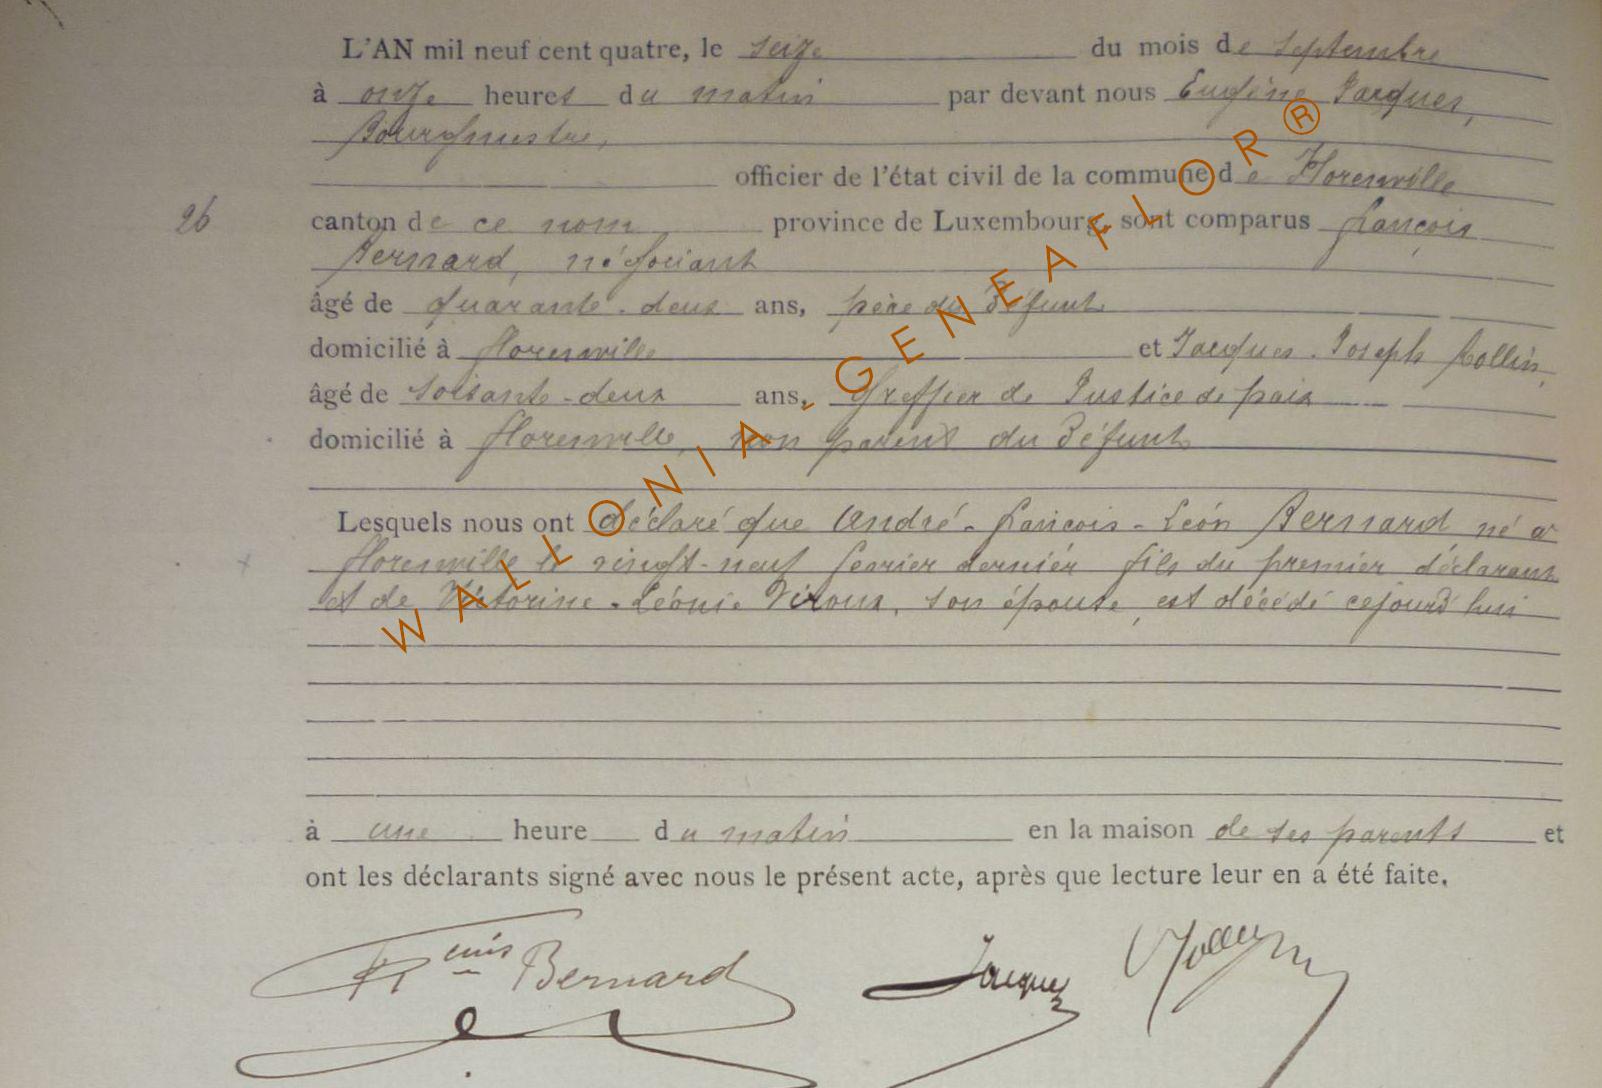 L'AN mil neuf cent quatre, le seize du mois de septembre
à onze heures du matin par devant nous Eugène Jacques,
Bourgmestre,
officier de l'état civil de la commune de Florenville
26 canton de ce nom province de Luxembourg, sont comparus françois
Bernard, négociant
âgé de quarante-deux ans, père du défunt
domicilié à florenville et Jacques-Joseph Collin,
âgé de soixante-deux ans, Greffier de Justice de paix
domicilié à florenville, non parent du défunt
Lesquels nous ont déclaré que André-françois-Léon Bernard né à
florenville le vingt-neuf fevrier dernier fils du premier déclarant
et de Victorine-Léonie Viroux, son épouse, est décédé cejourd'hui
à une heure du matin en la maison de ses parents et
ont les déclarants signé avec nous le présent acte, après que lecture leur en a été faite.
Bernard Jacques
WALLONIA-GENEAFLOR®